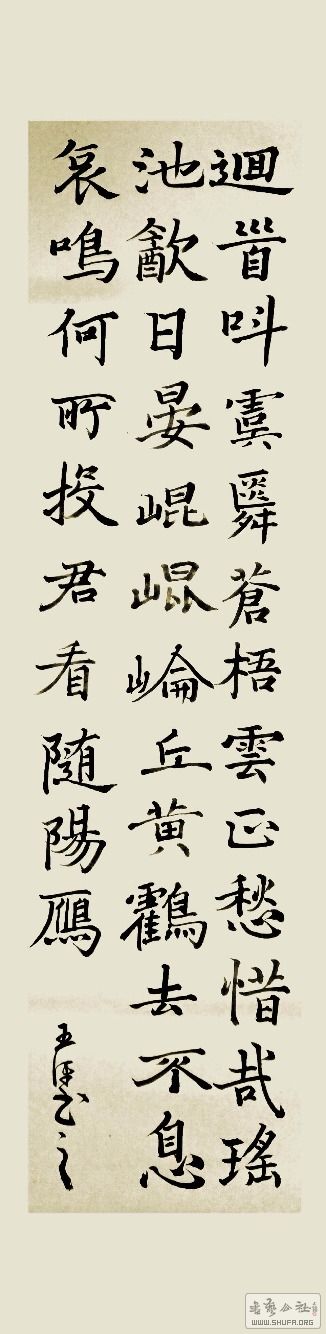 迴首叫虞舜蒼梧雲正愁惜哉瑤
池㱃日晏崐崐崘丘黄鸛去不息
哀鳴何所投君看随陽鴈
王书之
书艺公社
WWW.SHUFA.ORG